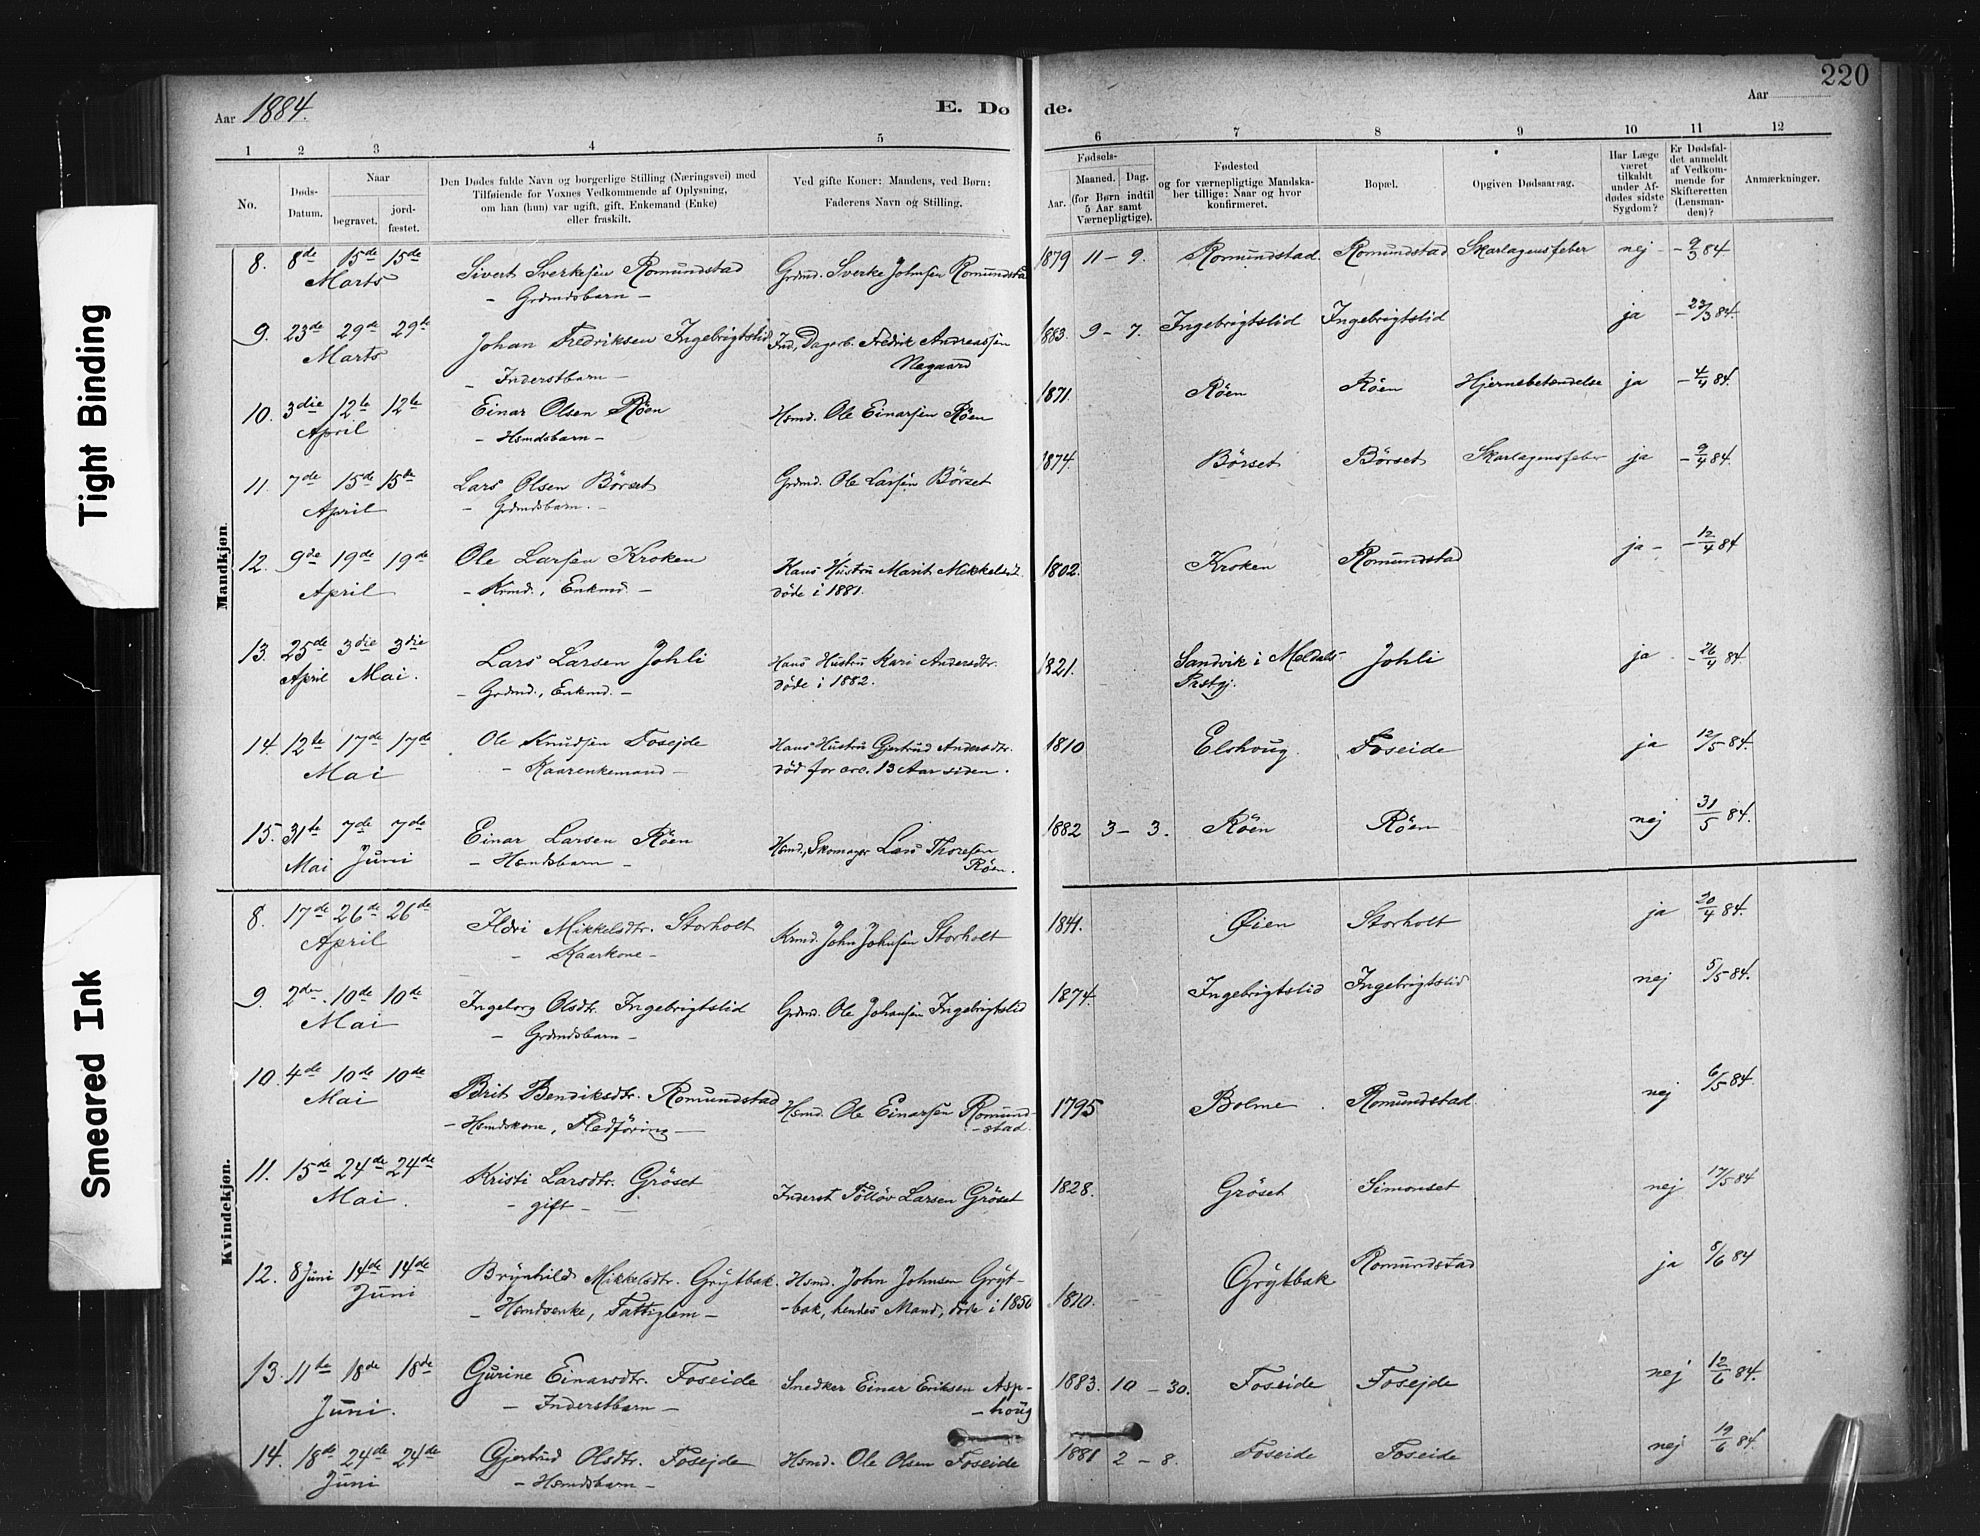 220
Aar 1884.
E. Dø de.
Aar
1 2 3 4 5 6 7 8 9 10 11 12
No.
Døds-Datum.
Naar
begravet.
jord-fæstet.
Den Dødes fulde Navn og borgerlige Stilling (Næringsvei) med
Tilføiende for Voxnes Vedkommende af Oplysning,
om han (hun) var ugift, gift, Enkemand (Enke)
eller fraskilt.
Ved gifte Koner: Mandens, ved Børn:
Faderens Navn og Stilling.
Fødsels-
Aar. Maaned. Dag.
(for Børn indtil
5 Aar samt
Værnepligtige).
Fødested
og for værnepligtige Mandska-
ber tillige: Naar og hvor
konfirmeret.
Bopæl.
Opgiven Dødsaarsag.
Har Læge
været
tilkaldt
under Af-
dødes sidste
Sygdom?
Er Dødsfal-
det anmeldt
af Vedkom-
mende for
Skifteretten
(Lensman-
den)?
Anmærkninger.
Mandkjøn.
8. 8de 15de 15de Sivert Sverkesen Romundstad Grdmd. Sverke Johnsen Romundsta 1879 11 - 9. Romundstad. Romundstad Skarlagensfeber nej - 9/3 84
Marts - Grdmdsbarn -
9. 23de 29de 29de Johan Fredriksen Ingebrigtslid Ind., Dagarb. Fredrik Andreassen 1883. 9 - 7. Ingebrigtslid Ingebrigtslid ja - 23/3 84.
Marts - Inderstbarn - Negaard
10. 3die 12te 12te Einar Olsen Röen Hsmd. Ole Einarsen Röen 1871. Röen Röen Hjernebetændelse ja - 4/4 84.
April - Hsmdsbarn -
11. 7de 15de 15de Lars Olsen Börset Grdmd. Ole Larsen Börset 1874. Börset Börset Skarlagensfeber ja - 9/4 84.
April - Grdmdsbarn. -
12. 9de 19de 19de Ole Larsen Kroken Hans Hustru Marit Mikkelsdt. 1802. Kroken Romundstad ja - - 12/4 84
April - Krmd., Enkmd. - döde i 1881.
13. 25de 3die 3die Lars Larsen Johli Hans Hustru Kari Andersdtr. 1821. Sandvik i Meldals Johli ja - 26/4 84.
April Mai. - Grdmd., Enkmd. - döde i 1882. Prstgj.
14. 12te 17de 17de Ole Knudsen Fosejde Hans Hustru Gjertrud Andersdtr. 1810 Elshoug. Foseide ja 12/5 84.
Mai - Kaarenkemand - död for circ. 13 Aar siden.
15. 31te 7de 7de Einar Larsen Röen Hsmd., Skomager Lars Thoresen 1882 3 - 3. Röen Röen nej 31/5 84.
Mai Juni - Hsmdsbarn - Röen.
Kvindekjøn.
8. 17de 26de 26de Ildri Mikkelsdtr. Storholt Krmd. John Johnsen Storholt 1841. Øien Storholt ja 20/4 84.
April - Kaarkone -
9. 2den 10de 10de Ingeborg Olsdtr. Ingebrigtslid Grdmd. Ole Johansen Ingebrigtslid 1874. Ingebrigtslid Ingebrigtslid nej 5/5 84.
Mai - Grdmdsbarn -
10. 4de 10de 10de Brit Bendiksdtr. Romundstad Hsmd. Ole Einarsen Romund- 1795 Bolme. Romundstad. nej 6/5 84.
Mai - Hsmdskone, Fledföring - -stad.
11. 15de 24de 24de Kristi Larsdtr. Gröset Inderst Fölløv Larsen Gröset 1828. Gröset Simonset nej 17/5 84
Mai. - gift -
12. 8 Juni 14de 14de Brynhild Mikkelsdtr. Grytbak. Hsmd. John Johnsen Gryt- 1810. Grytbak Romundstad ja 8/6 84
Juni - Hsmdsenke, Fattiglem - -bak, hendes Mand, döde i 1850
13. 11te 18de 18de Gurine Einarsdtr. Foseide Snedker Einar Eriksen Asp- 1883. 10 - 30. Foseide Fosejde nej 12/6 84.
Juni. - Inderstbarn - - houg
14. 18de 24de 24de Gjertrud Olsdtr. Fosejde Hsmd. Ole Olsen Foseide 1881 2 - 8. Foseide Foseide nej 19/6 84.
Juni - Hsmdsbarn -
Tight Binding
Smeared Ink